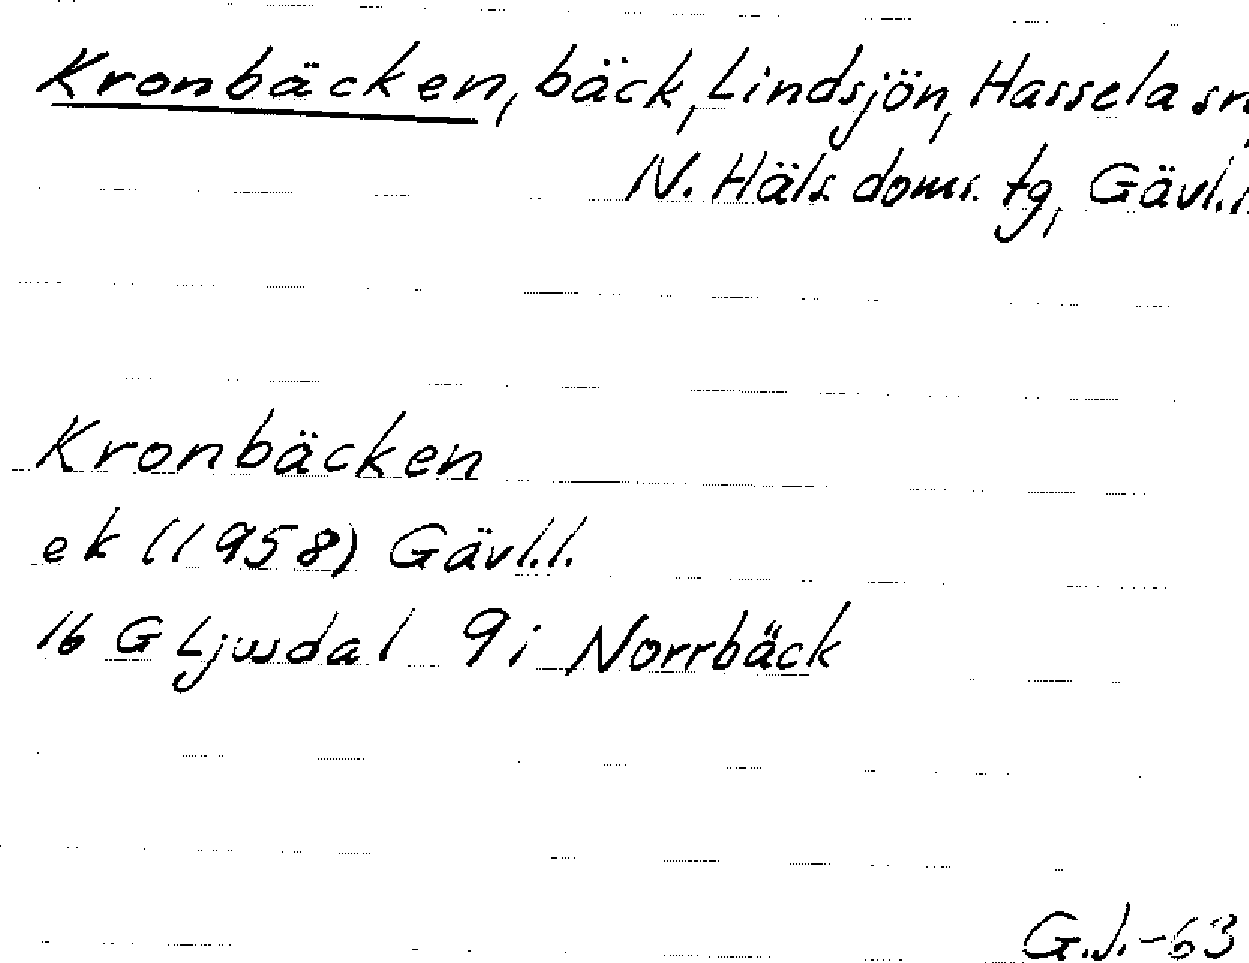 Kronbäcken, bäck, Lindsjön, Hassela sn,
N. Häls. doms. tg, Gävl.l.
Kronbäcken
ek (1958) Gävl.l.
16 G Ljusdal 9i Norrbäck
G.J.-63